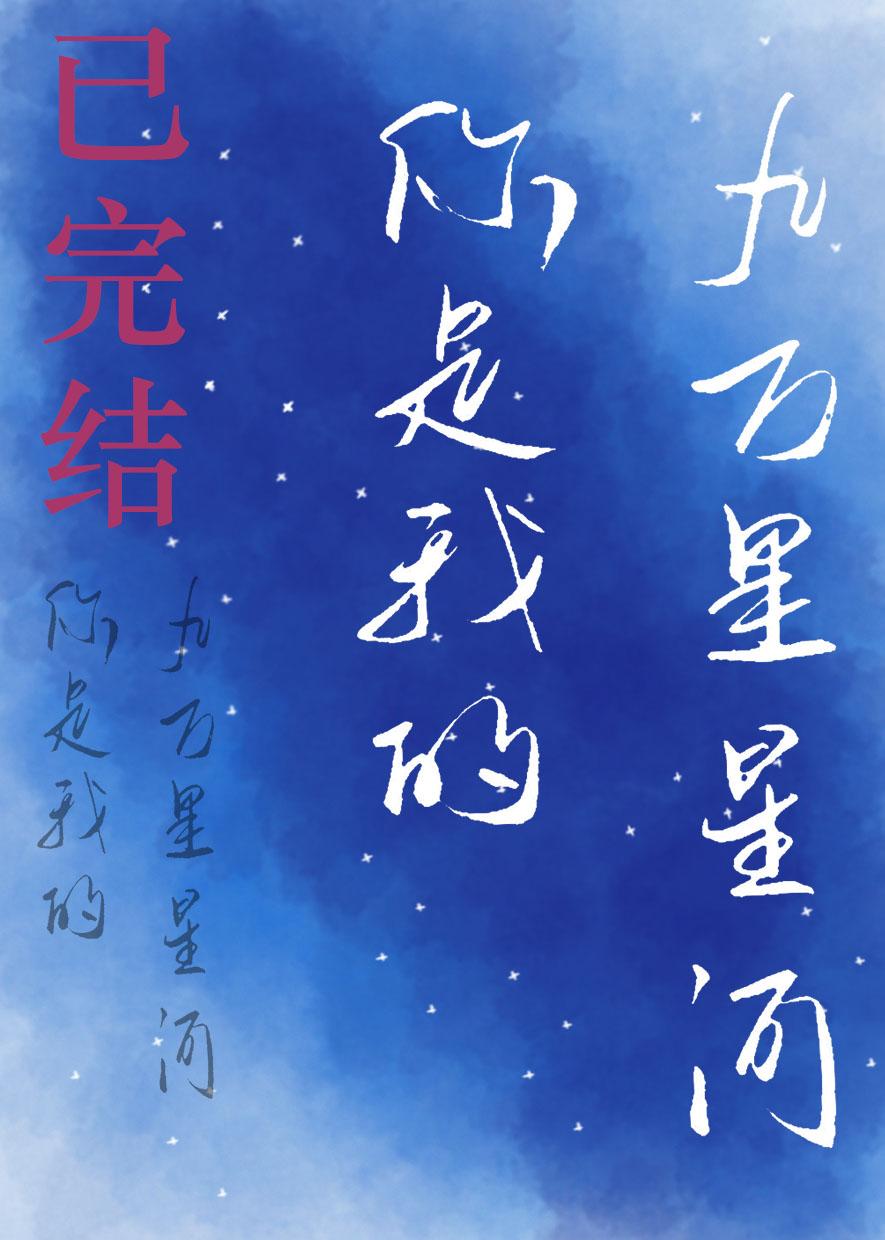 九万星星河
你是我的
已完结
九万星星河
你是我的